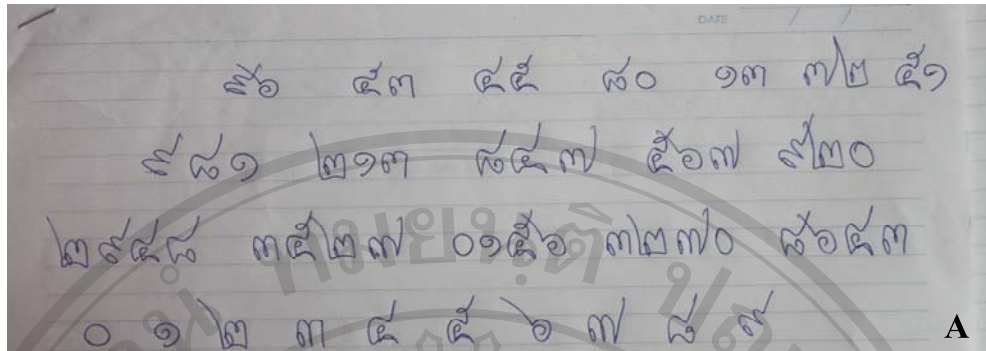 DATE / /
๙๖ ๕๓ ๔๕ ๘๐ ๑๓ ๗๒ ๕๑
๙๘๑ ๒๑๓ ๘๔๗ ๕๖๗ ๙๒๐
๒๙๔๘ ๓๕๒๗ ๐๑๕๖ ๓๒๗๐ ๘๖๔๓
๐ ๑ ๒ ๓ ๔ ๕ ๖ ๗ ๘ ๙ A